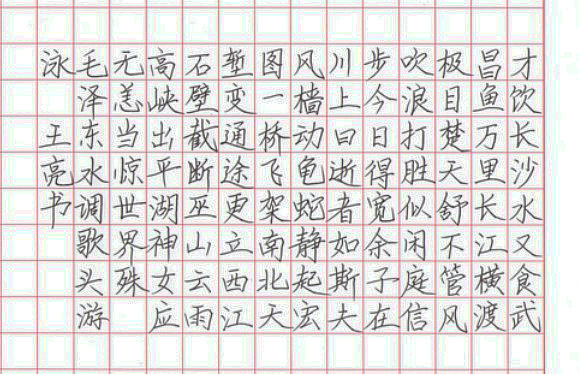 才饮长沙水又食武
昌鱼万里长江横渡
极目楚天舒不管风
吹浪打胜似闲庭信
步今日得宽余子在
川上曰逝者如斯夫
风樯动龟蛇静起宏
图一桥飞架南北天
堑变通途更立西江
石壁截断巫山云雨
高峡出平湖神女应
无恙当惊世界殊
毛泽东水调歌头游
泳 王亮书